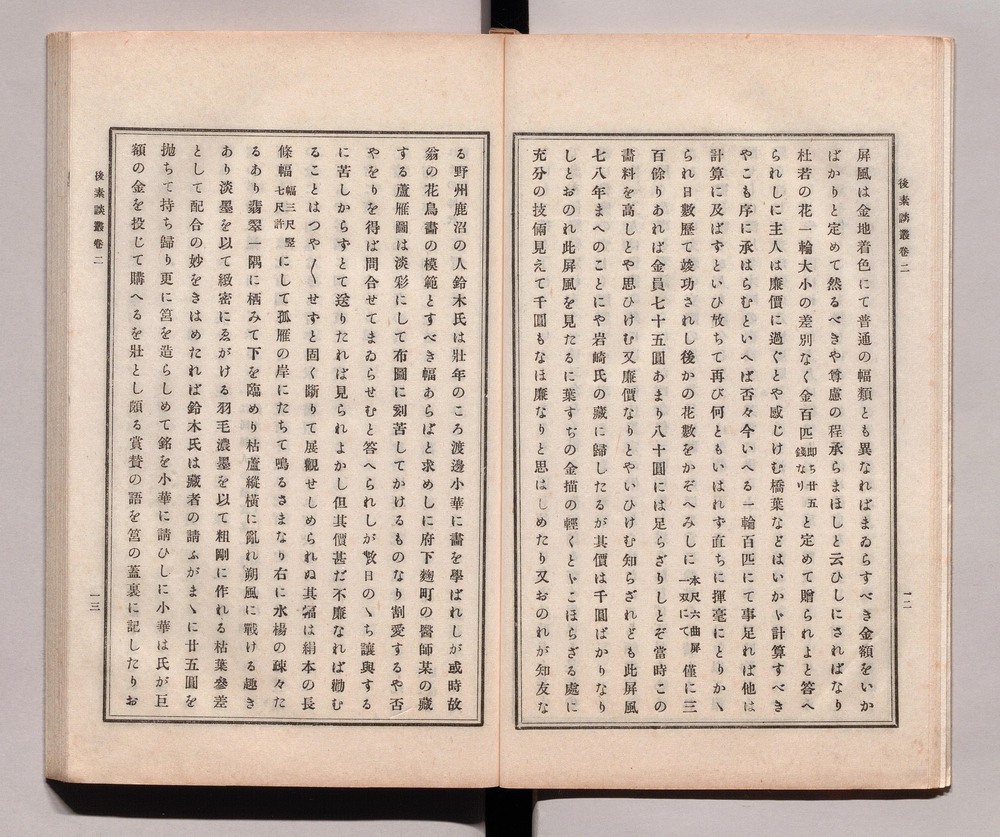 後素談叢卷二
一二
屏風は金地着色にて普通の幅類とも異なればまゐらすべき金額をいか
ばかりと定めて然るべきや尊慮の程承らまほしと云ひしにさればなり
杜若の花一輪大小の差別なく金百匹即ち廿五錢なりと定めて贈られよと答へ
られしに主人は廉價に過ぐとや感じけむ橋葉などはいかゝ計算すべき
やこも序に承はらむといへば否々今いへる一輪百匹にて事足れば他は
計算に及ばずといひ放ちて再び何ともいはれず直ちに揮毫にとりかゝ
られ日數歷て竣功されし後かの花數をかぞへみしに本尺六曲屏一双にて僅に三
百餘りあれば金員七十五圓あまり八十圓には足らざりしとぞ當時この
畵料を高しとや思ひけむ又廉價なりとやいひけむ知らざれども此屏風
七八年まへのことにや岩崎氏の藏に歸したるが其價は千圓ばかりなり
しとおのれ此屏風を見たるに葉すぢの金描の輕くとゝこほらざる處に
充分の技倆見えて千圓もなほ廉なりと思はしめたり又おのれが知友な
る野州鹿沼の人鈴木氏は壯年のころ渡邊小華に畵を學ばれしが或時故
翁の花鳥畵の模範とすべき幅あらばと求めしに府下麹町の醫師某の藏
する蘆雁圖は淡彩にして布圖に刻苦してかけるものなり割愛するや否
やをりを得ば問合せてまゐらせむと答へられしが數日のゝち讓與する
に苦しからすとて送りたれば見られよかし但其價甚だ不廉なれば勸む
ることはつや〳〵せすと固く斷りて展觀せしめられぬ其幅は絹本の長
條幅幅三尺竪七尺許にして孤雁の岸にたちて鳴るさまなり右に水楊の疎々た
るあり翡翠一隅に栖みて下を臨めり枯蘆縱橫に亂れ朔風に戰ける趣き
あり淡墨を以て緻密にゑがける羽毛濃墨を以て粗剛に作れる枯葉參差
として配合の妙をきはめたれば鈴木氏は藏者の請ふがまゝに廿五圓を
抛ちて持ち歸り更に筥を造らしめて銘を小華に請ひしに小華は氏が巨
額の金を投じて購へるを壯とし頗る賞贊の語を筥の蓋裏に記したりお
後素談叢卷二
一三